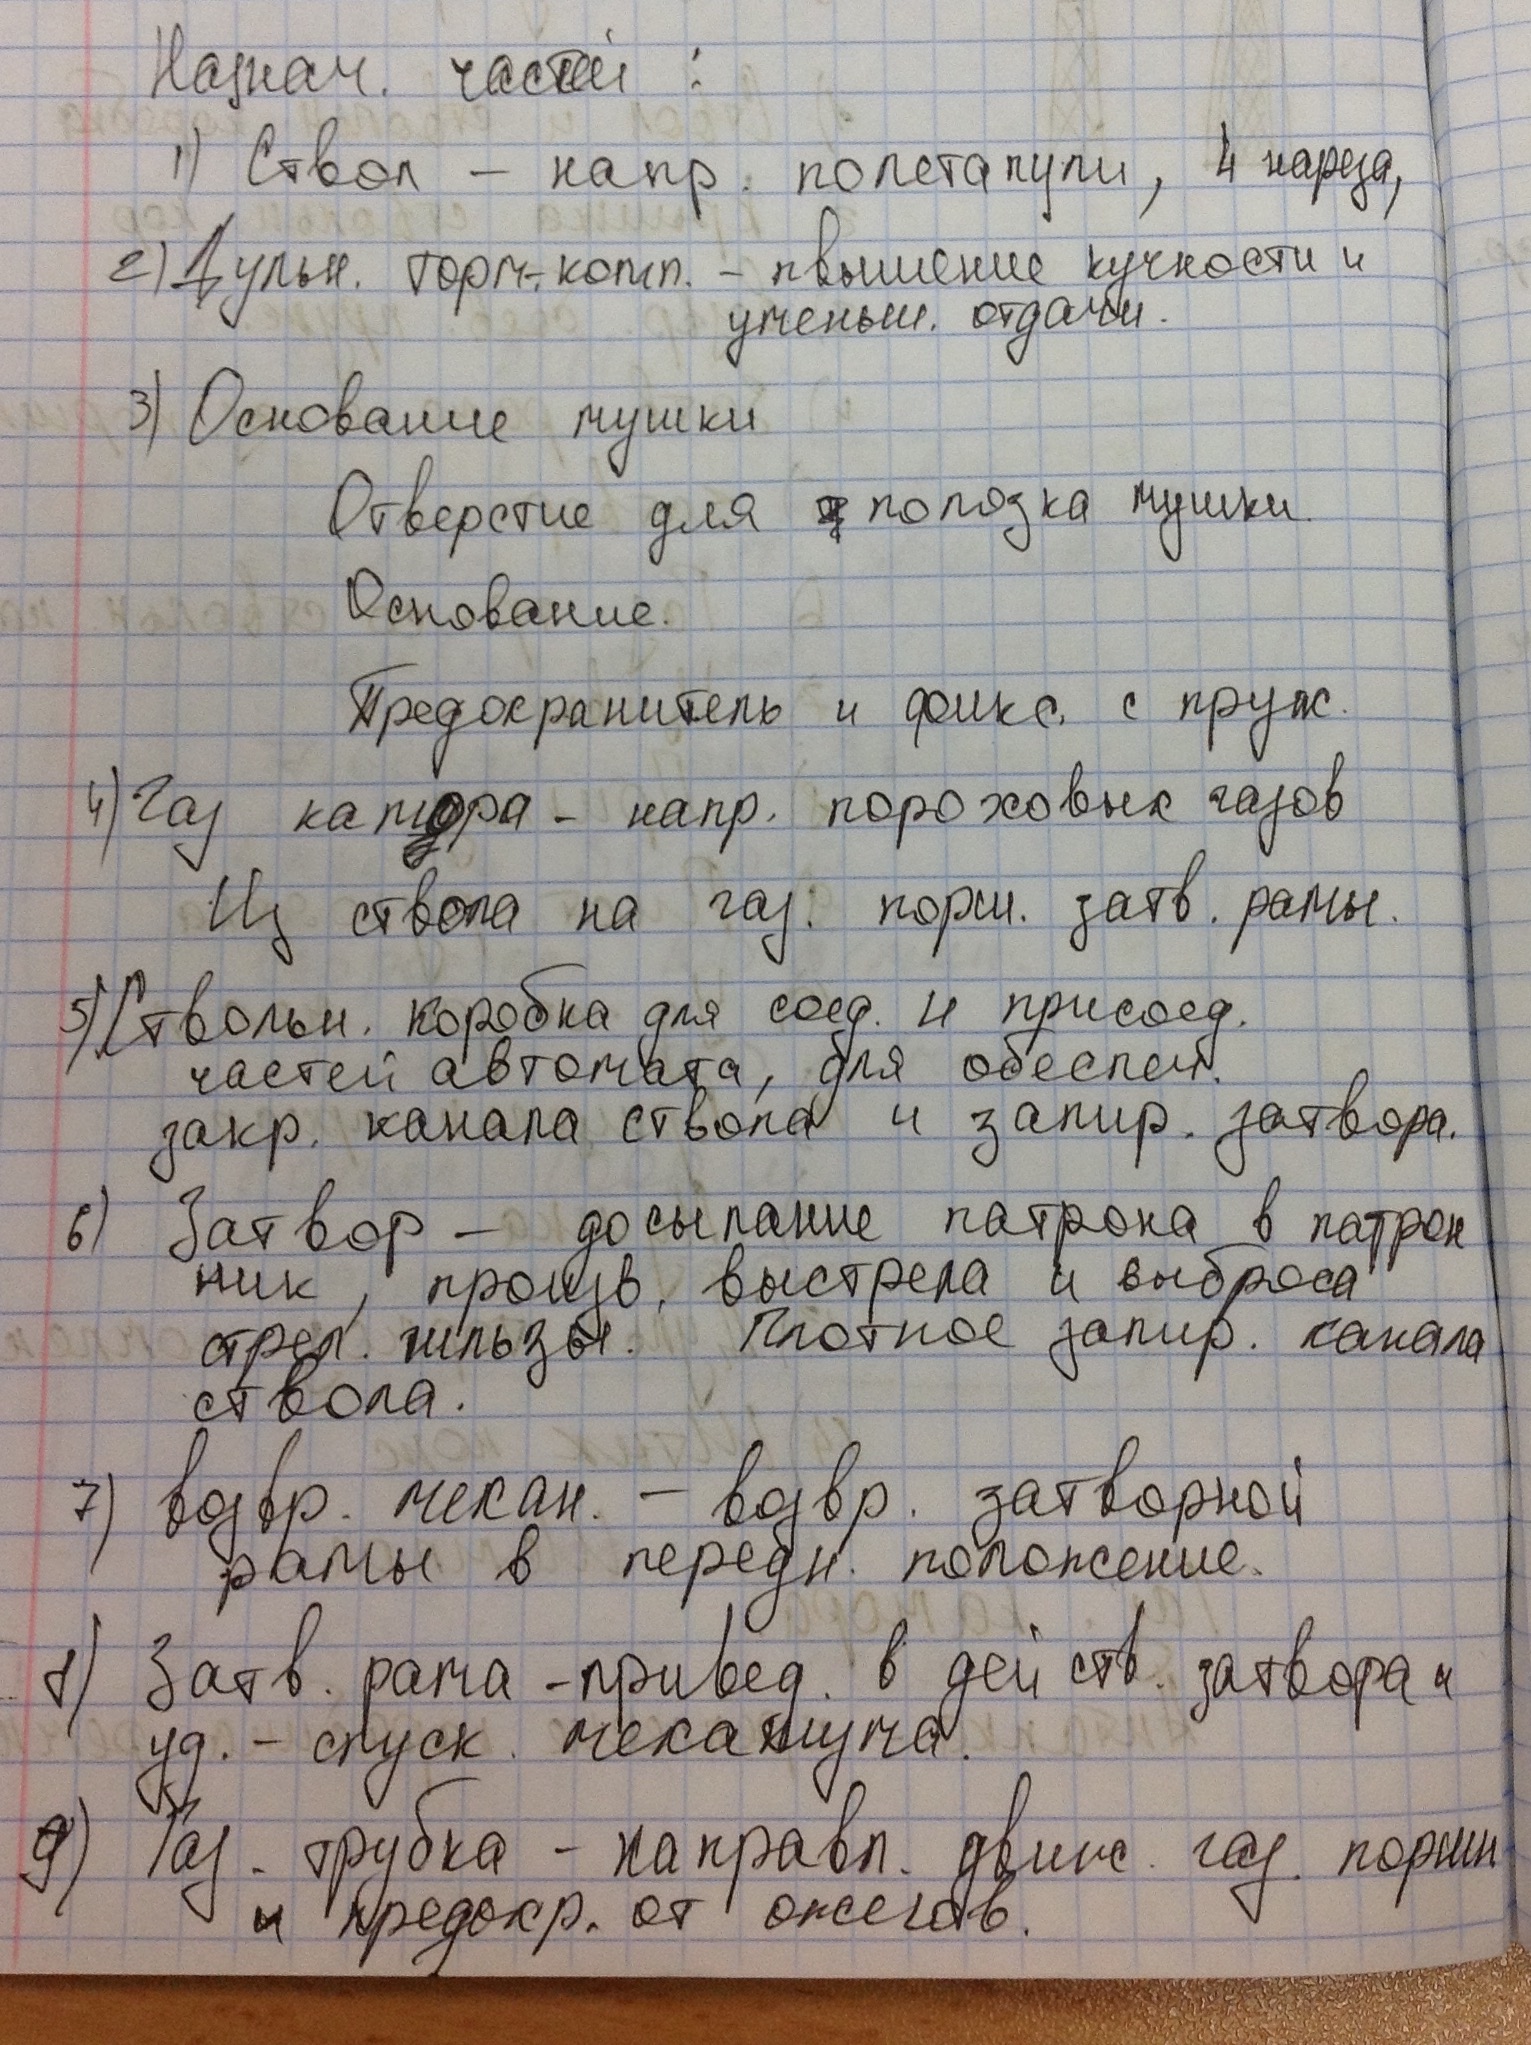 Назнач. частей :
1) Ствол – напр. полета пули, 4 нареза,
2) Дульн. торм.-комп. – пвышение кучности и
уменьш. отдачи.
3) Основание мушки
Отверстие для полозка мушки.
Основание.
Предохранитель и фикс. с пруж.
4) Газ камора – напр. пороховых газов
Из ствола на газ. порш. затв. рамы.
5) Ствольн. коробка для соед. и присоед.
частей автомата, для обеспеч.
закр. канала ствола и запир. затвора.
6) Затвор – досылание патрона в патрон
ник, произв. выстрела и выброса
стрел. гильзы. Плотное запир. канала
ствола.
7) Возвр. механ. – возвр. затворной
рамы в передн. положение.
8) Затв. рама – привед. в действ. затвора и
уд. – спуск. механизма.
9) Газ. трубка – направл. движ. газ. поршн
и предохр. от ожегов.